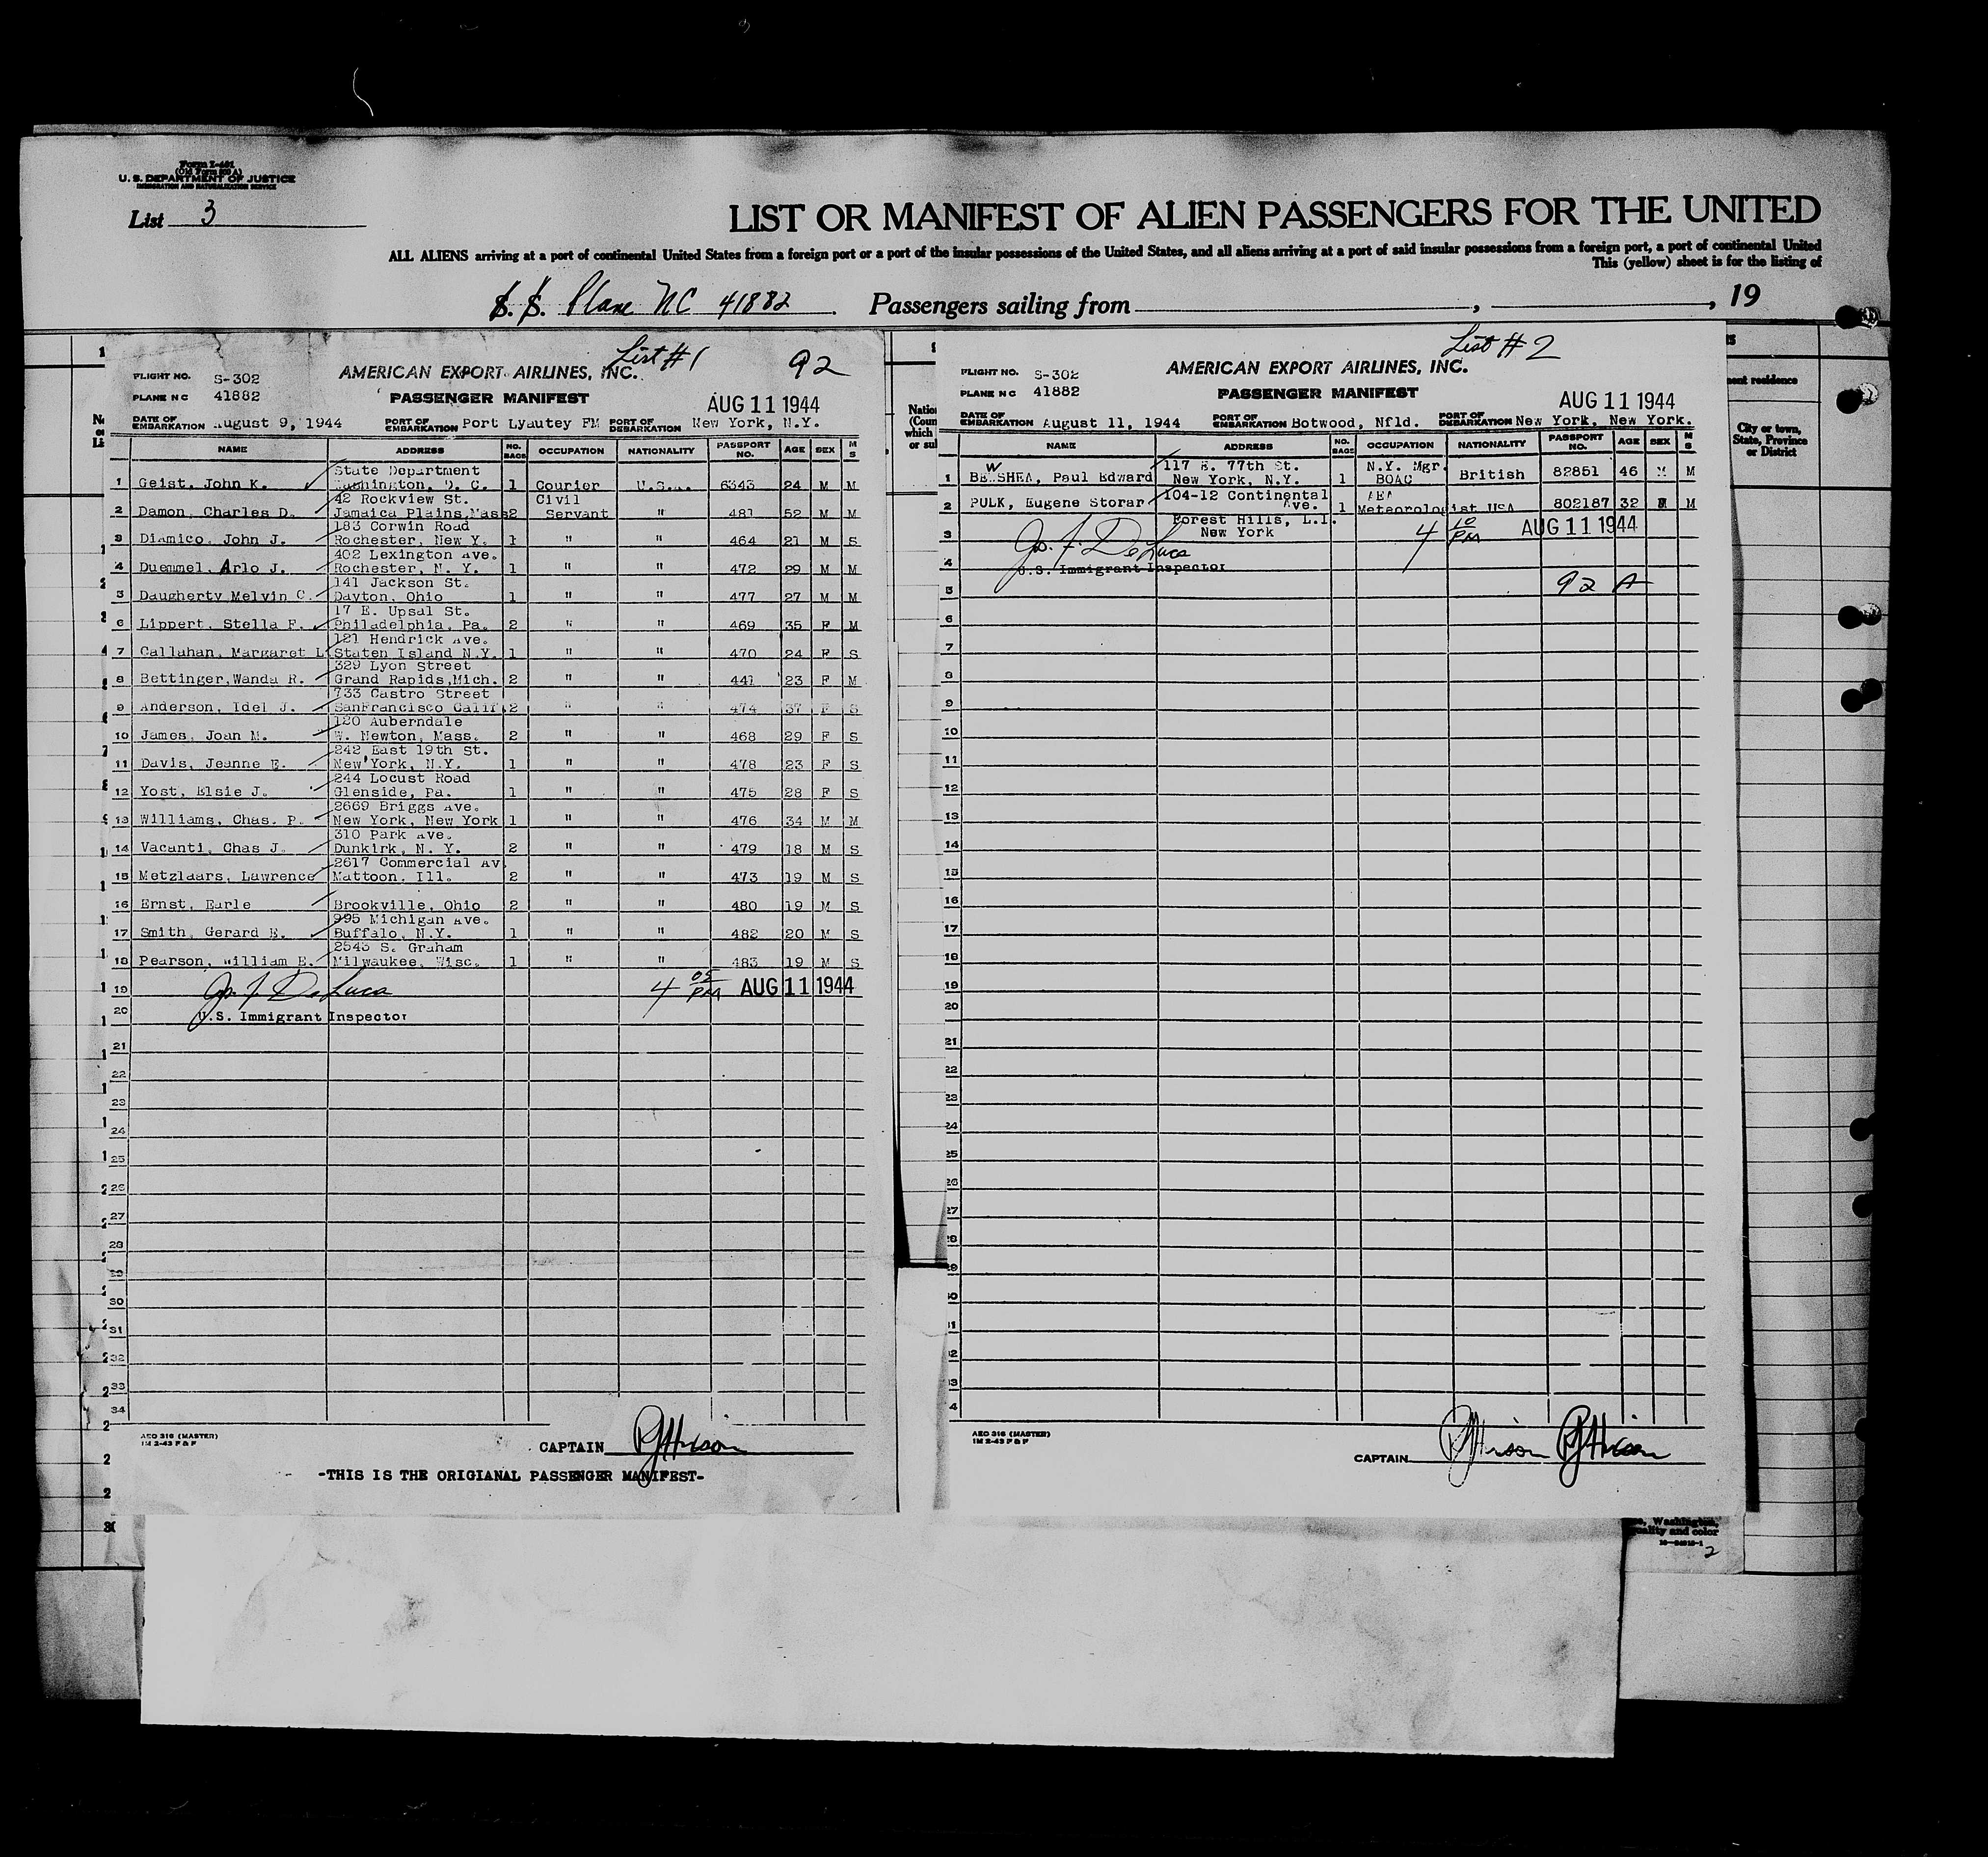 Form I-461
(Old Form 500 A)
U. S. DEPARTMENT OF JUSTICE
IMMIGRATION AND NATURALIZATION SERVICE
List 3
LIST OR MANIFEST OF ALIEN PASSENGERS FOR THE UNITED
ALL ALIENS arriving at a port of continental United States from a foreign port or a port of the insular possessions of the United States, and all aliens arriving at a port of said insular possessions from a foreign port, a port of continental United
This (yellow) sheet is for the listing of
S. S. Plane NC 41882. Passengers sailing from , , 19
List #1 92
AMERICAN EXPORT AIRLINES, INC.
FLIGHT NO. S-302
PLANE NC 41882
PASSENGER MANIFEST
AUG 11 1944
DATE OF EMBARKATION August 9, 1944 PORT OF EMBARKATION Port Lyautey FM PORT OF DEBARKATION New York, N.Y.
NAME ADDRESS NO. BAGS OCCUPATION NATIONALITY PASSPORT NO. AGE SEX M S
State Department
1 Geist, John K. Washington, D. C. 1 Courier U.S.A. 6343 24 M M
42 Rockview St. Civil
2 Damon, Charles D. Jamaica Plains,Mass 2 Servant " 481 52 M M
183 Corwin Road
3 Diamico, John J. Rochester, New Y. 1 " " 464 21 M S
402 Lexington Ave.
4 Duemmel, Arlo J. Rochester, N. Y. 1 " " 472 29 M M
141 Jackson St.
5 Daugherty Melvin C. Dayton, Ohio 1 " " 477 27 M M
17 E. Upsal St.
6 Lippert, Stella F. Philadelphia, Pa. 2 " " 469 35 F M
121 Hendrick Ave.
7 Callahan, Margaret L Staten Island N.Y. 1 " " 470 24 F S
329 Lyon Street
8 Bettinger,Wanda R. Grand Rapids,Mich. 2 " " 441 23 F M
733 Castro Street
9 Anderson, Idel J. SanFrancisco Calif. 2 " " 474 37 F S
120 Auberndale
10 James, Joan M. W. Newton, Mass. 2 " " 468 29 F S
242 East 19th St.
11 Davis, Jeanne E. New York, N.Y. 1 " " 478 23 F S
244 Locust Road
12 Yost, Elsie J. Glenside, Pa. 1 " " 475 28 F S
2669 Briggs Ave.
13 Williams, Chas. P. New York, New York 1 " " 476 34 M M
310 Park Ave.
14 Vacanti, Chas J. Dunkirk, N. Y. 2 " " 479 18 M S
2617 Commercial Av.
15 Metzlaars, Lawrence Mattoon, Ill. 2 " " 473 19 M S
16 Ernst, Earle Brookville, Ohio 2 " " 480 19 M S
995 Michigan Ave.
17 Smith, Gerard E. Buffalo, N.Y. 1 " " 482 20 M S
2543 S. Graham
18 Pearson, William E. Milwaukee, Wisc. 1 " " 483 19 M S
19 Jos. J. DeLuca 4 05 PM AUG 11 1944
20 U.S. Immigrant Inspector
21
22
23
24
25
26
27
28
29
30
31
32
33
34
AEO 316 (MASTER)
1M 2-43 F & F
CAPTAIN
-THIS IS THE ORIGIANAL PASSENGER MANIFEST-
List #2
AMERICAN EXPORT AIRLINES, INC.
FLIGHT NO. S-302
PLANE NC 41882
PASSENGER MANIFEST
AUG 11 1944
DATE OF EMBARKATION August 11, 1944 PORT OF EMBARKATION Botwood, Nfld. PORT OF DEBARKATION New York, New York.
NAME ADDRESS NO. BAGS OCCUPATION NATIONALITY PASSPORT NO. AGE SEX M S
W 117 E. 77th St. N.Y. Mgr.
1 BEWSHEA, Paul Edward New York, N.Y. 1 BOAC British 82851 46 M M
104-12 Continental AEA
2 PULK, Eugene Storar Ave. 1 Meteorologist USA 802187 32 M M
Forest Hills, L.I.
3 New York 4 10 PM AUG 11 1944
Jos. J. DeLuca
4 U.S. Immigrant Inspector
5 92 A
6
7
8
9
10
11
12
13
14
15
16
17
18
19
20
21
22
23
24
25
26
27
28
29
30
31
32
33
34
AEO 316 (MASTER)
1M 2-43 F & F
CAPTAIN
ent residence
City or town,
State, Province
or District
Washington,
quality and color
2